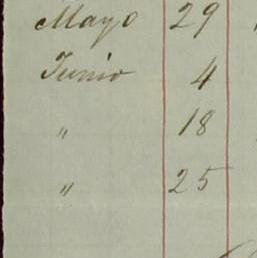 Mayo 29
Junio 4
" 18
" 25